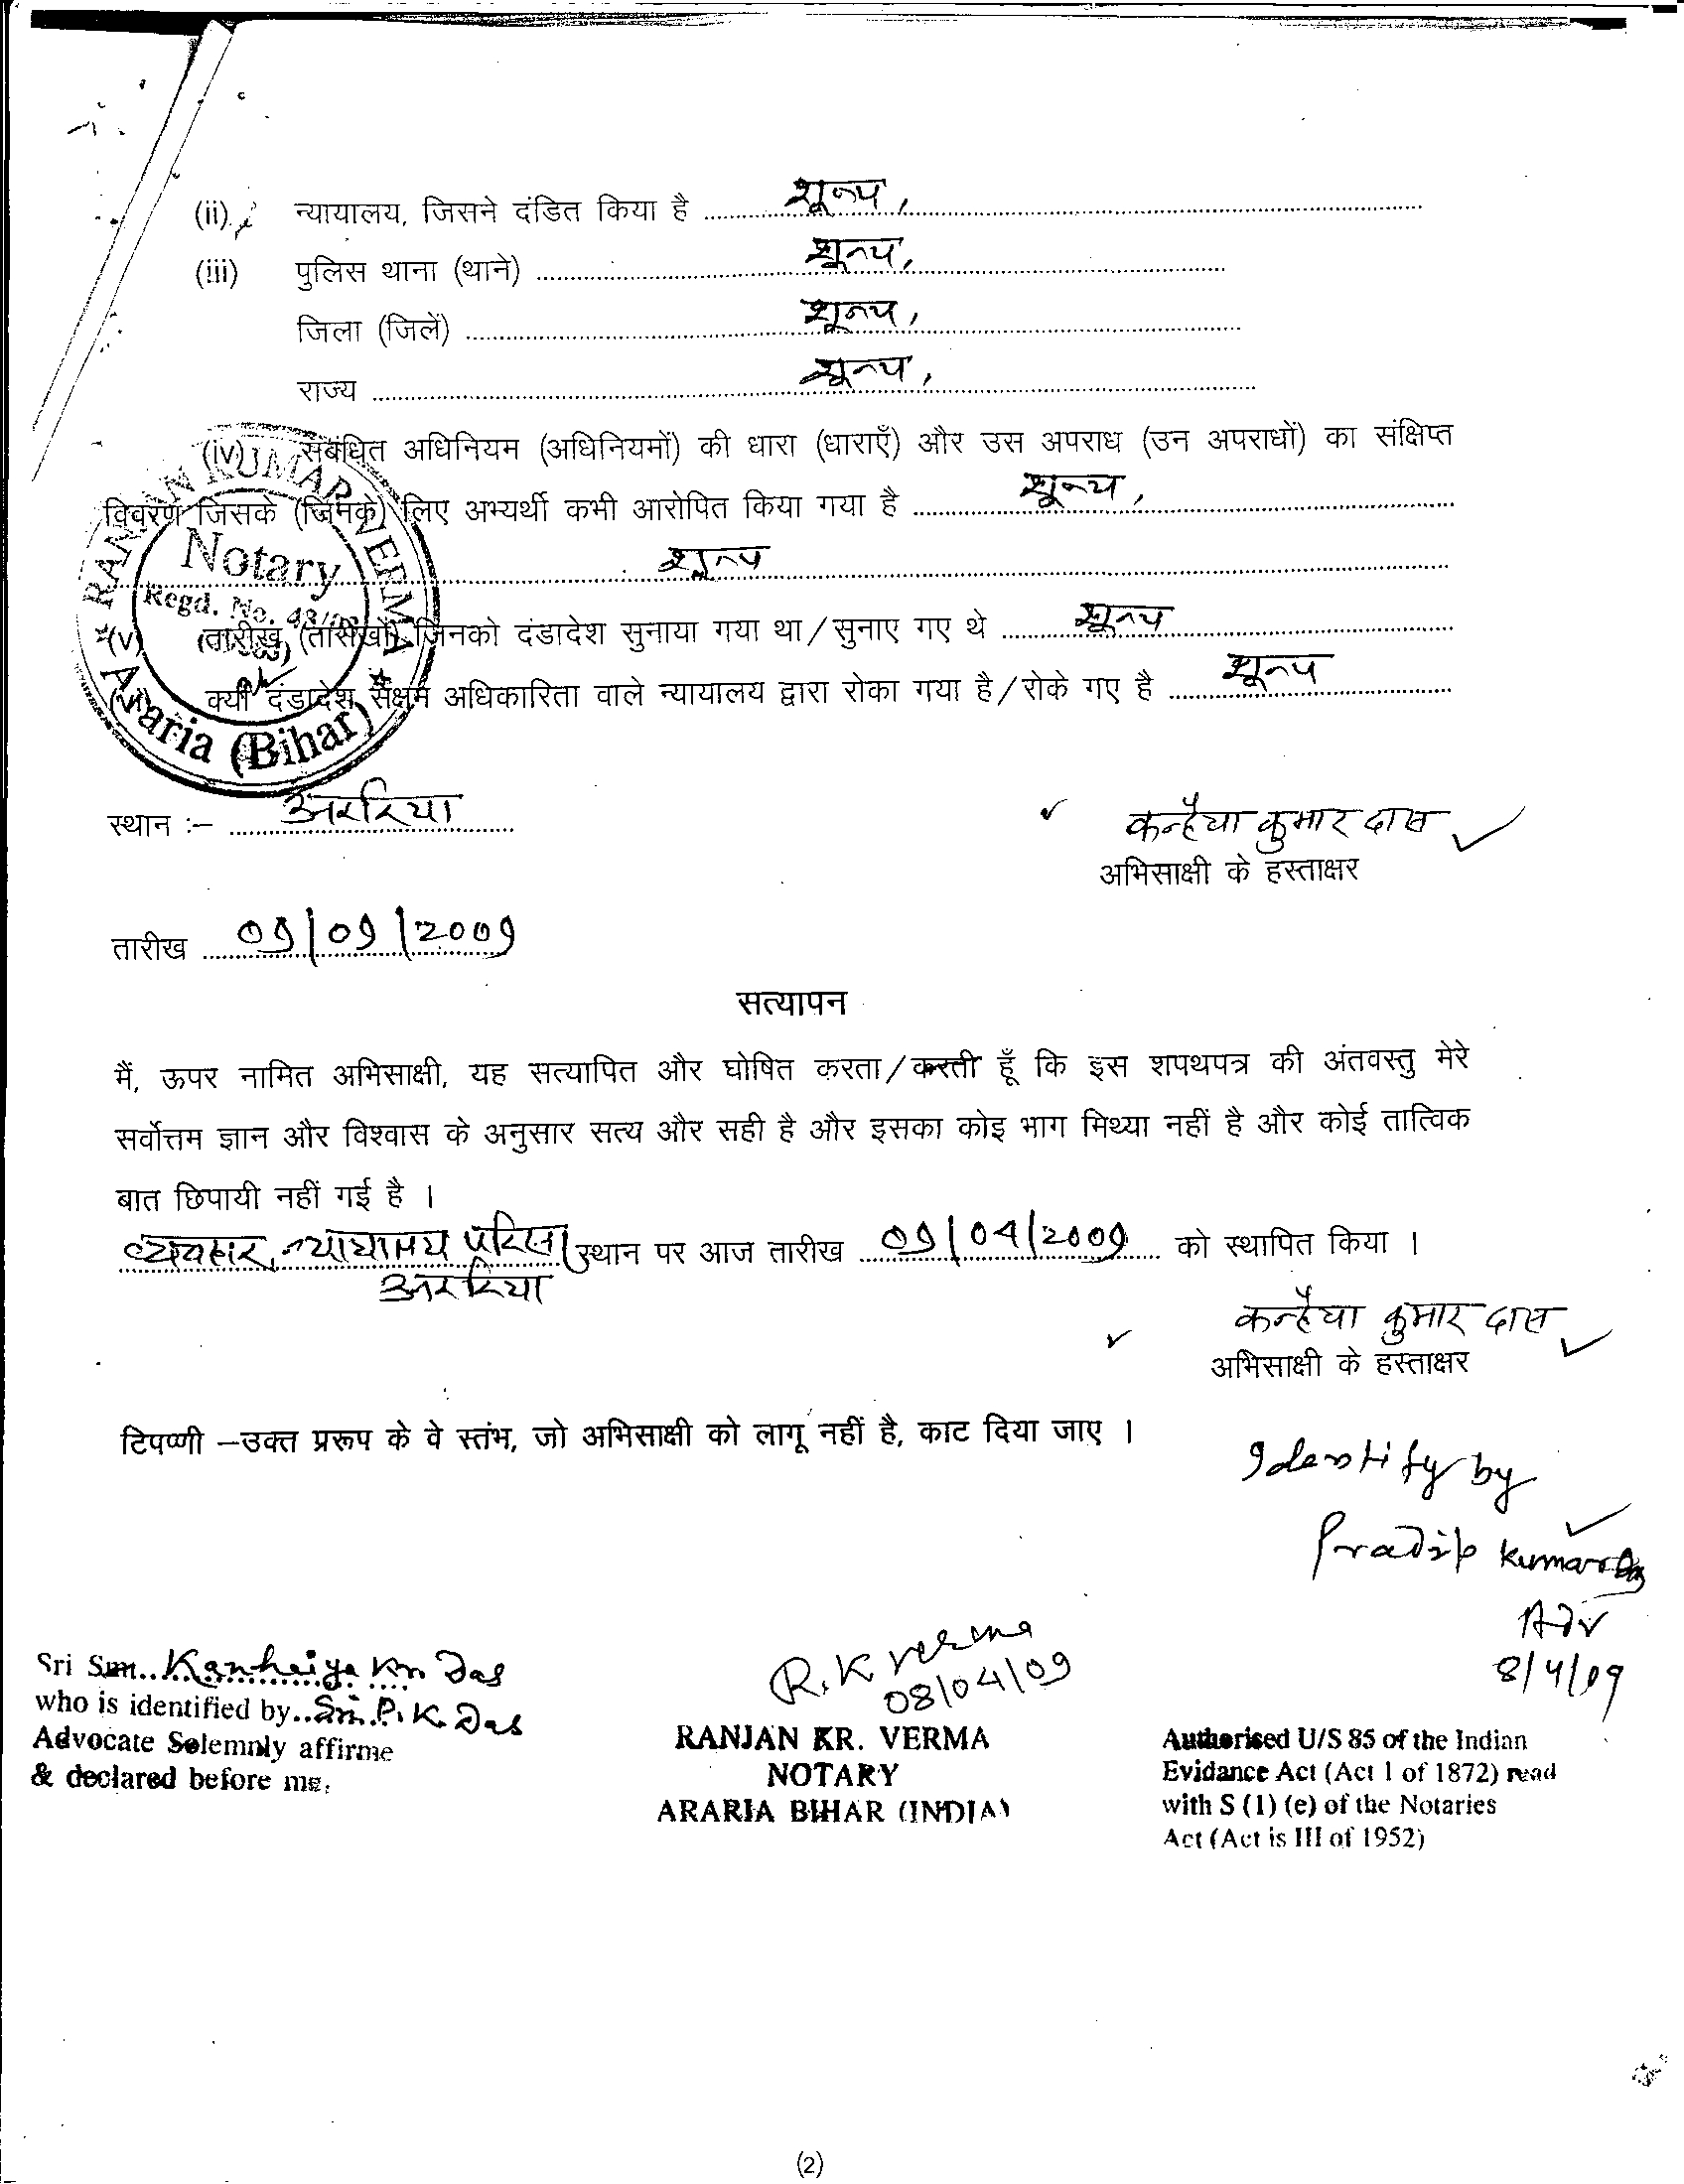 (ii) न्यायालय, जिसने दंडित किया है शून्य,
(iii) पुलिस थाना (थाने) शून्य,
जिला (जिलें) शून्य,
राज्य शून्य,
(iv) संबंधित अधिनियम (अधिनियमों) की धारा (धाराएँ) और उस अपराध (उन अपराधों) का संक्षिप्त
विवरण जिसके (जिनके) लिए अभ्यर्थी कभी आरोपित किया गया है शून्य,
शून्य
(v) तारीख (तारीखों) जिनको दंडादेश सुनाया गया था/सुनाए गए थे शून्य
क्यों दंडादेश सक्षम अधिकारिता वाले न्यायालय द्वारा रोका गया है/रोके गए है शून्य
RANJAN KUMAR VERMA
Notary
Regd. No.
Araria (Bihar)
स्थान :- अररिया
कन्हैया कुमार दास
अभिसाक्षी के हस्ताक्षर
तारीख 09/09/2009
सत्यापन
मैं, ऊपर नामित अभिसाक्षी, यह सत्यापित और घोषित करता/करती हूँ कि इस शपथपत्र की अंतवस्तु मेरे
सर्वोत्तम ज्ञान और विश्वास के अनुसार सत्य और सही है और इसका कोइ भाग मिथ्या नहीं है और कोई तात्विक
बात छिपायी नहीं गई है ।
व्यवहार, न्यायालय परिसर स्थान पर आज तारीख 09/04/2009 को स्थापित किया ।
अररिया
कन्हैया कुमार दास
अभिसाक्षी के हस्ताक्षर
टिपण्णी –उक्त प्ररूप के वे स्तंभ, जो अभिसाक्षी को लागू नहीं है, काट दिया जाए ।
Identify by
Pradip Kumar Das
Adv
8/4/09
Sri Smt.. Kanhaiya Kr. Das
who is identified by.. P. K. Das
Advocate Solemnly affirme
& declared before me.
R. K Verma
08/04/09
RANJAN KR. VERMA
NOTARY
ARARIA BIHAR (INDIA)
Authorised U/S 85 of the Indian
Evidance Act (Act 1 of 1872) read
with S (1) (e) of the Notaries
Act (Act is III of 1952)
(2)